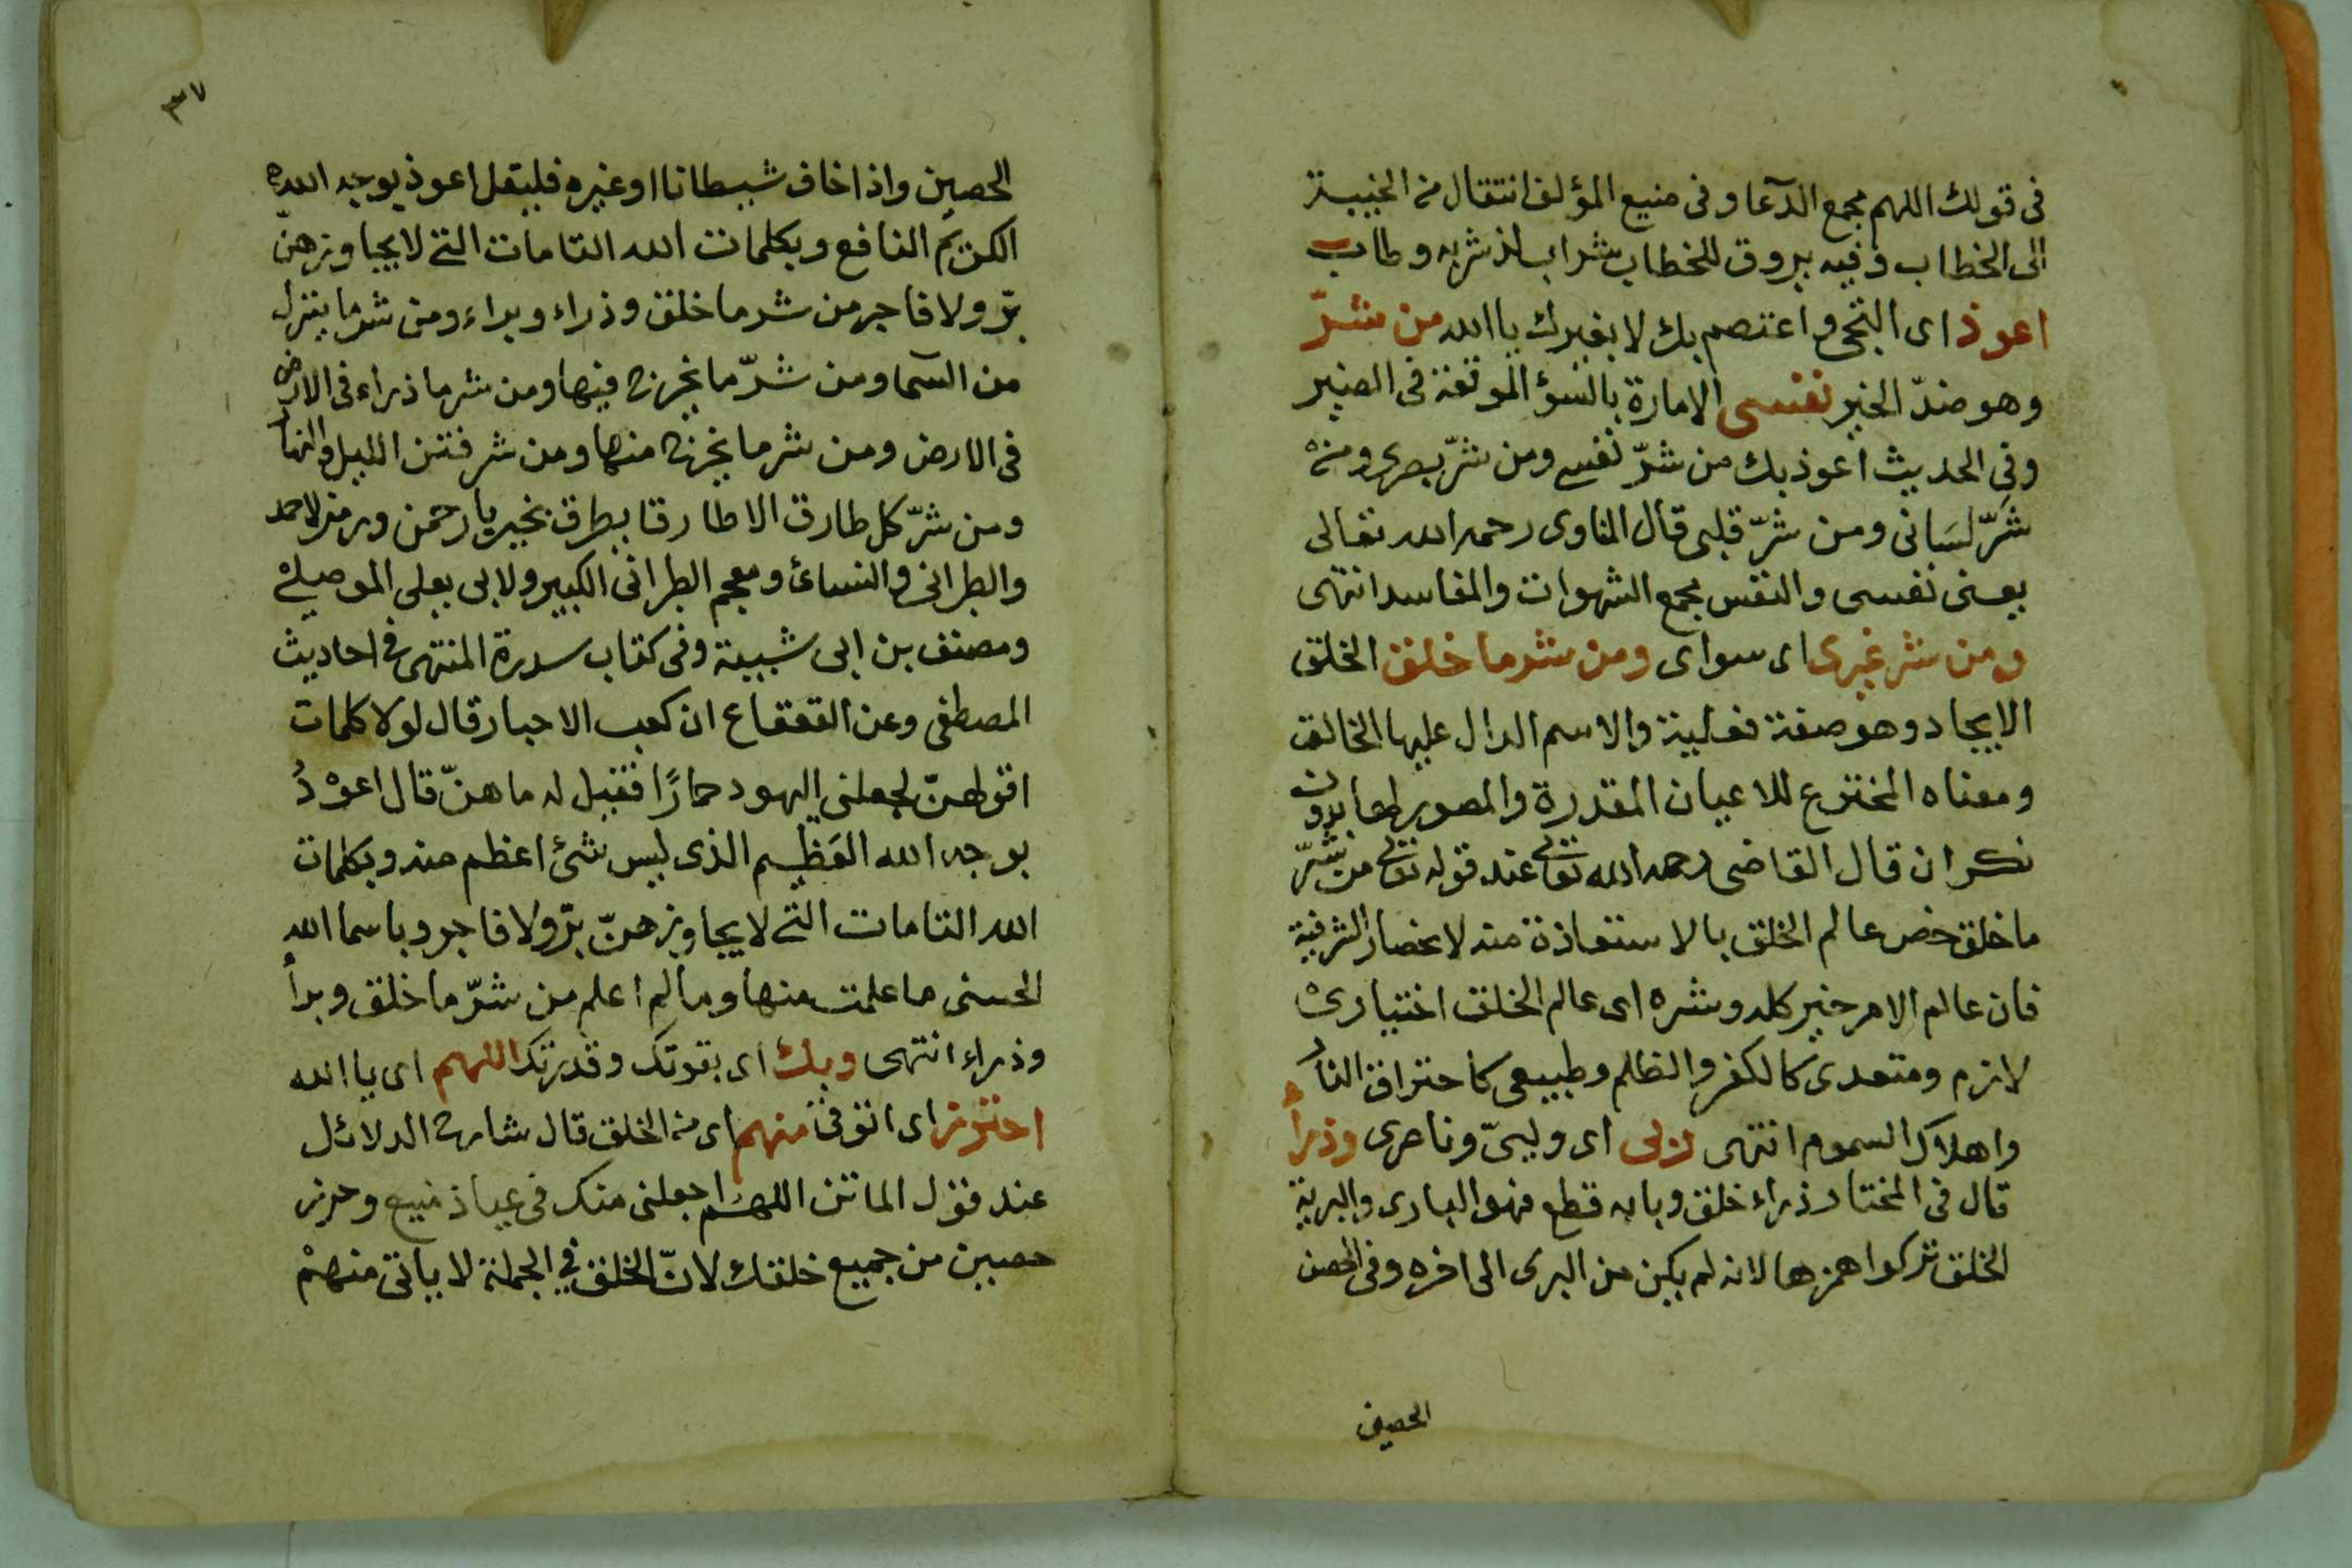 فى قولك اللهم مجمع الدآعا وفى منيع المؤلف انتقال من الغيبة
الى الخطاب وفيه يروق للخطاب شراب لذ شربه وطاب
اعوذ اى التجئ واعتصم بك لا بغيرك يا الله من شرّ
وهو ضدّ الخير نفسى الامارة بالسوٴ الموقعة فى الضير
وفى الحديث اعوذ بك من شرّ نفسى ومن شرّ بصرى ومن
شرّ لسَانى ومن شرّ قلبى قال المناوى رحمه الله تعالى
يعنى نفسى والنفس مجمع الشهوات والمفاسد انتهى
ومن شر غيرى اى سواى ومن شر ما خلق الخلق
الايجاد وهو صفة فعلية والاسم الدال عليها الخالق
ومعناه المخترع للاعيان المقدرة والمصور لها بدون
نكران قال القاضى رحمه الله تعالى عند قوله تعالى من شرّ
ما خلق خص عالم الخلق بالاستعاذة منه لانحصار الشر فيه
فان عالم الامر خير كله وشره اى عالم الخلق اختيارى
لازم ومتعدى كالكفر والظلم وطبيعى كاحتراق النار
واهلاك السموم انتهى لزلى اى وليىّ وناصرى وذرأ
قال فى المختار ذراء خلق وبابه قطع فهو البارى والبرية
الخلق تركوا همزها لانه لم يكن من البرى الى اخره وفى الحصن
الحصين
٣٧
الحصين واذا خاف شيطانا او غيره فليقل اعوذ بوجه الله
الكريم النافع وبكلمات الله التامات التى لا يجاوزهنّ
برّ ولا فاجر من شر ما خلق وذراء وبراء ومن شر ما ينزل
من السمآ ومن شرّ ما يعرج فيها ومن شر ما ذراء فى الارض
فى الارض ومن شر ما يخرج منها ومن شر فتن الليل والنهار
ومن شرّ كل طارق الا طارقا يطرق بخير يا رحمن ورمز لاحمد
والطبرانى والنسائ ومعجم الطبرانى الكبير ولابى يعلى الموصلى
ومصنف بن ابى شيبة وفى كتاب سدرة المنتهى فى احاديث
المصطفى وعن القعقاع ان كعب الاحبار قال لولا كلمات
اقولهنّ لجعلنى اليهود حمارًا فقيل له ما هنّ قال اعوْذُ
بوجه الله العَظيم الذى ليس شئ اعظم منه وبكلمات
الله التامات التى لا يجاوزهنّ برّ ولا فاجر وباسما الله
الحسنى ما علمت منها وما لم اعلم من شرّ ما خلق وبرأ
وذراء انتهى وبك اى بقوتك وقدرتك اللهم اى يا الله
احترز اى اتوقى منهم اى من الخلق قال شارح الدلائل
عند قول الماتن اللهم اجعلنى منك فى عياذ منيع وحرز
حصين من جميع خلقك لانّ الخلق فى الجملة لا ياتى منهمْ